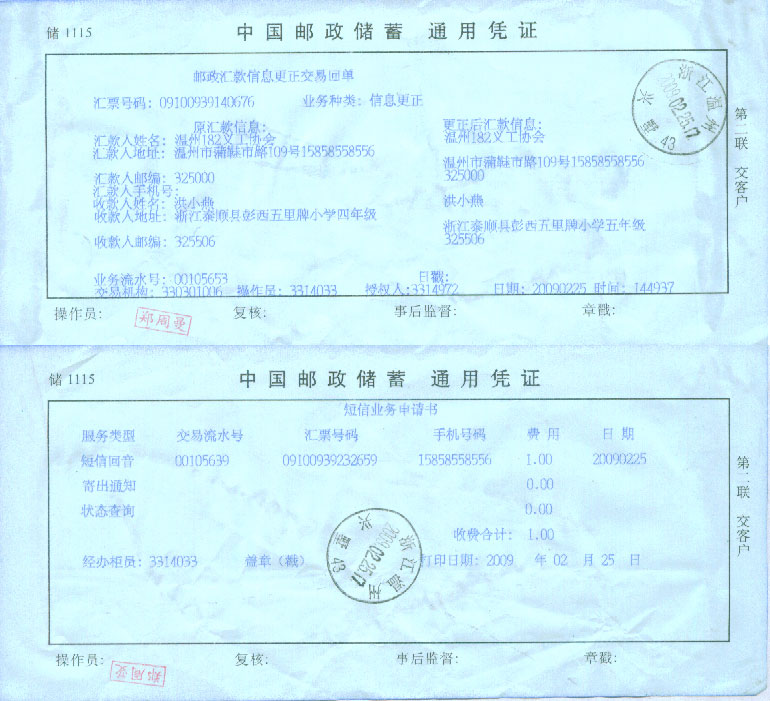 储1115 中国邮政储蓄 通用凭证
邮政汇款信息更正交易回单
汇票号码：09100939140676 业务种类：信息更正
原汇款信息： 更正后汇款信息：
汇款人姓名：温州182义工协会 温州182义工协会
汇款人地址：温州市蒲鞋市路109号15858558556 温州市蒲鞋市路109号15858558556
汇款人邮编：325000 325000
汇款人手机号：
收款人姓名：洪小燕 洪小燕
收款人地址：浙江泰顺县彭西五里牌小学四年级 浙江泰顺县彭西五里牌小学五年级
收款人邮编：325506 325506
业务流水号：00105653 日戳：
交易机构：330301006 操作员：3314033 授权人：3314972 日期：20090225 时间：144937
操作员： 郑周曼 复核： 事后监督： 章戳：
第二联 交客户
浙江温州
2009.02.25.17
43
储1115 中国邮政储蓄 通用凭证
短信业务申请书
服务类型 交易流水号 汇票号码 手机号码 费用 日期
短信回音 00105639 09100939232659 15858558556 1.00 20090225
寄出通知 0.00
状态查询 0.00
收费合计：1.00
经办柜员：3314033 盖章（戳） 打印日期：2009 年 02 月 25 日
浙江温州
2009.02.25.17
43
操作员： 郑周曼 复核： 事后监督： 章戳：
第二联 交客户